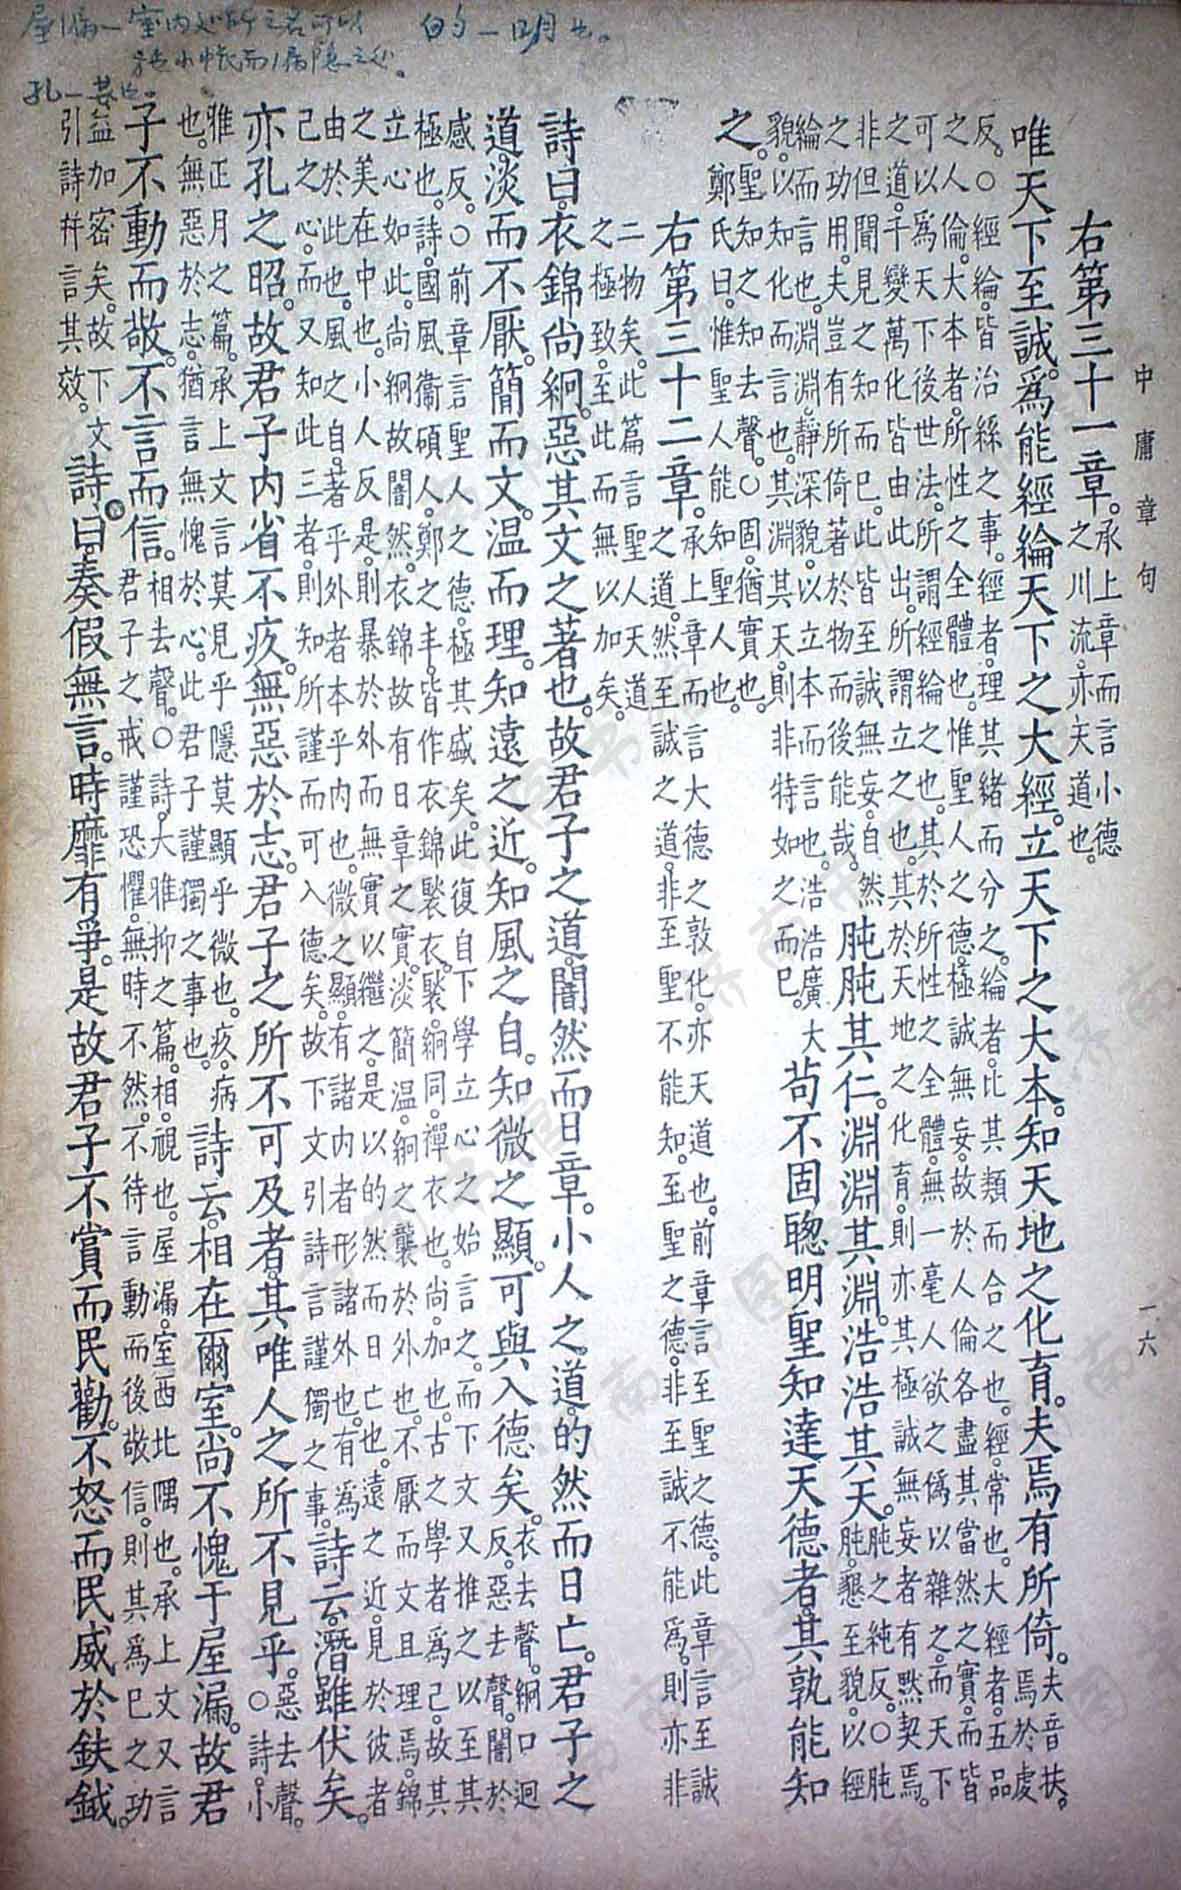 中庸章句
一六
的—明也。
孔—甚也。
右第三十一章。承上章而言小德之川流。亦天道也。
唯天下至誠。爲能經綸天下之大經。立天下之大本。知天地之化育。夫焉有所倚。夫音扶。焉於虔
反。○經綸。皆治絲之事。經者。理其緒而分之。綸者。比其類而合之也。經。常也。大經者。五品之人倫。大本者。所性之全體也。惟聖人之德。極誠無妄。故於人倫各盡其當然之實。而皆
可以爲天下後世法。所謂經綸之也。其於所性之全體。無一毫人欲之僞以雜之。而天下之道千變萬化皆由此出。所謂立之也。其於天地之化育。則亦其極誠無妄者有默契焉。
非但聞見之知而已。此皆至誠無妄。自然之功用。夫豈有所倚著於物而後能哉。肫肫其仁。淵淵其淵。浩浩其天。肫。之純反。○肫肫。懇至貌。以經
綸而言也。淵淵。靜深貌。以立本而言也。浩浩。廣大貌。以知化而言也。其淵其天。則非特如之而已。苟不固聰明聖知達天德者。其孰能知
之。聖知之知。去聲。○固。猶實也。鄭氏曰。惟聖人能知聖人也。
右第三十二章。承上章而言大德之敦化。亦天道也。前章言至聖之德。此章言至誠之道。然至誠之道。非至聖不能知。至聖之德。非至誠不能爲。則亦非
二物矣。此篇言聖人天道之極致。至此而無以加矣。
詩曰。衣錦尚絅。惡其文之著也。故君子之道。闇然而日章。小人之道。的然而日亡。君子之
道。淡而不厭。簡而文。温而理。知遠之近。知風之自。知微之顯。可與入德矣。衣去聲。絅口迥反。惡去聲。闇於
感反。○前章言聖人之德。極其盛矣。此復自下學立心之始言之。而下文又推之以至其極也。詩。國風衞碩人。鄭之丰。皆作衣錦褧衣。褧。絅同。襌衣也。尚。加也。古之學者爲己。故其
立心如此。尚絅故闇然。衣錦故有日章之實。淡簡温。絅之襲於外也。不厭而文且理焉。錦之美在中也。小人反是。則暴於外而無實以繼之。是以的然而日亡也。遠之近。見於彼者
由於此也。風之自。著乎外者本乎內也。微之顯。有諸內者形諸外也。有爲己之心。而又知此三者。則知所謹而可入德矣。故下文引詩言謹獨之事。詩云。潛雖伏矣。
亦孔之昭。故君子內省不疚。無惡於志。君子之所不可及者。其唯人之所不見乎。惡去聲。○詩。小
雅正月之篇。承上文言莫見乎隱莫顯乎微也。疚。病也。無惡於志。猶言無愧於心。此君子謹獨之事也。詩云。相在爾室。尚不愧于屋漏。故君
子不動而敬。不言而信。相去聲。○詩。大雅抑之篇。相。視也。屋漏。室西北隅也。承上文又言君子之戒謹恐懼。無時不然。不待言動而後敬信。則其爲己之功
益加密矣。故下文引詩幷言其效。詩曰。奏假無言。時靡有爭。是故君子不賞而民勸。不怒而民威於鈇鉞。